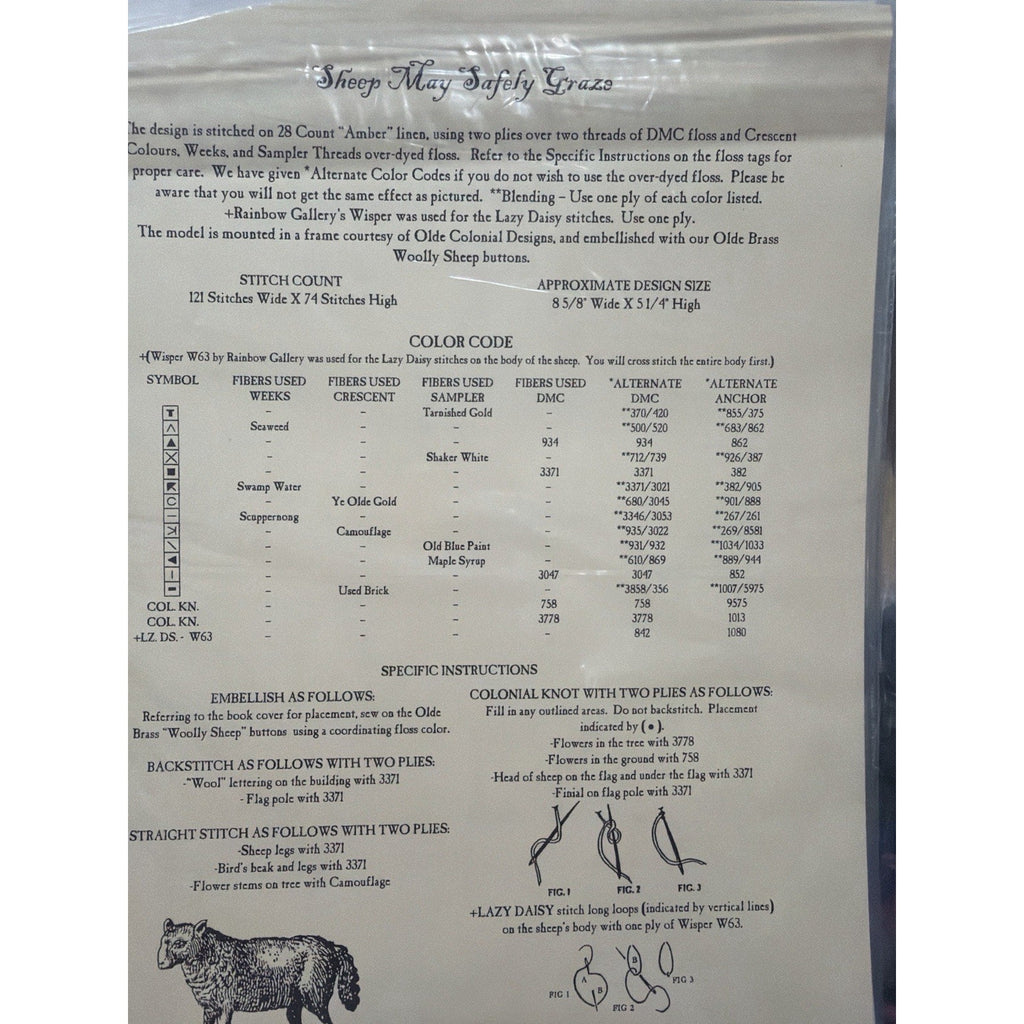 Sheep May Safely Graze
The design is stitched on 28 Count "Amber" linen, using two plies over two threads of DMC floss and Crescent
Colours, Weeks, and Sampler Threads over-dyed floss. Refer to the Specific Instructions on the floss tags for
proper care. We have given *Alternate Color Codes if you do not wish to use the over-dyed floss. Please be
aware that you will not get the same effect as pictured. **Blending – Use one ply of each color listed.
+Rainbow Gallery's Wisper was used for the Lazy Daisy stitches. Use one ply.
The model is mounted in a frame courtesy of Olde Colonial Designs, and embellished with our Olde Brass
Woolly Sheep buttons.
STITCH COUNT
121 Stitches Wide X 74 Stitches High
APPROXIMATE DESIGN SIZE
8 5/8" Wide X 5 1/4" High
COLOR CODE
+(Wisper W63 by Rainbow Gallery was used for the Lazy Daisy stitches on the body of the sheep. You will cross stitch the entire body first.)
SYMBOL FIBERS USED FIBERS USED FIBERS USED FIBERS USED *ALTERNATE *ALTERNATE
WEEKS CRESCENT SAMPLER DMC DMC ANCHOR
– – Tarnished Gold – **370/420 **855/375
Seaweed – – – **500/520 **683/862
– – – 934 934 862
– – Shaker White – **712/739 **926/387
– – – 3371 3371 382
Swamp Water – – – **3371/3021 **382/905
– Ye Olde Gold – – **680/3045 **901/888
Scuppernong – – – **3346/3053 **267/261
– Camouflage – – **935/3022 **269/8581
– – Old Blue Paint – **931/932 **1034/1033
– – Maple Syrup – **610/869 **889/944
– – – 3047 3047 852
– Used Brick – – **3858/356 **1007/5975
COL. KN. – – – 758 758 9575
COL. KN. – – – 3778 3778 1013
+LZ. DS. - W63 – – – – 842 1080
SPECIFIC INSTRUCTIONS
EMBELLISH AS FOLLOWS:
Referring to the book cover for placement, sew on the Olde
Brass "Woolly Sheep" buttons using a coordinating floss color.
BACKSTITCH AS FOLLOWS WITH TWO PLIES:
-"Wool" lettering on the building with 3371
- Flag pole with 3371
STRAIGHT STITCH AS FOLLOWS WITH TWO PLIES:
-Sheep legs with 3371
-Bird's beak and legs with 3371
-Flower stems on tree with Camouflage
COLONIAL KNOT WITH TWO PLIES AS FOLLOWS:
Fill in any outlined areas. Do not backstitch. Placement
indicated by (•).
-Flowers in the tree with 3778
-Flowers in the ground with 758
-Head of sheep on the flag and under the flag with 3371
-Finial on flag pole with 3371
FIG. 1 FIG. 2 FIG. 3
+LAZY DAISY stitch long loops (indicated by vertical lines)
on the sheep's body with one ply of Wisper W63.
A B B
FIG 1 FIG 2 FIG 3